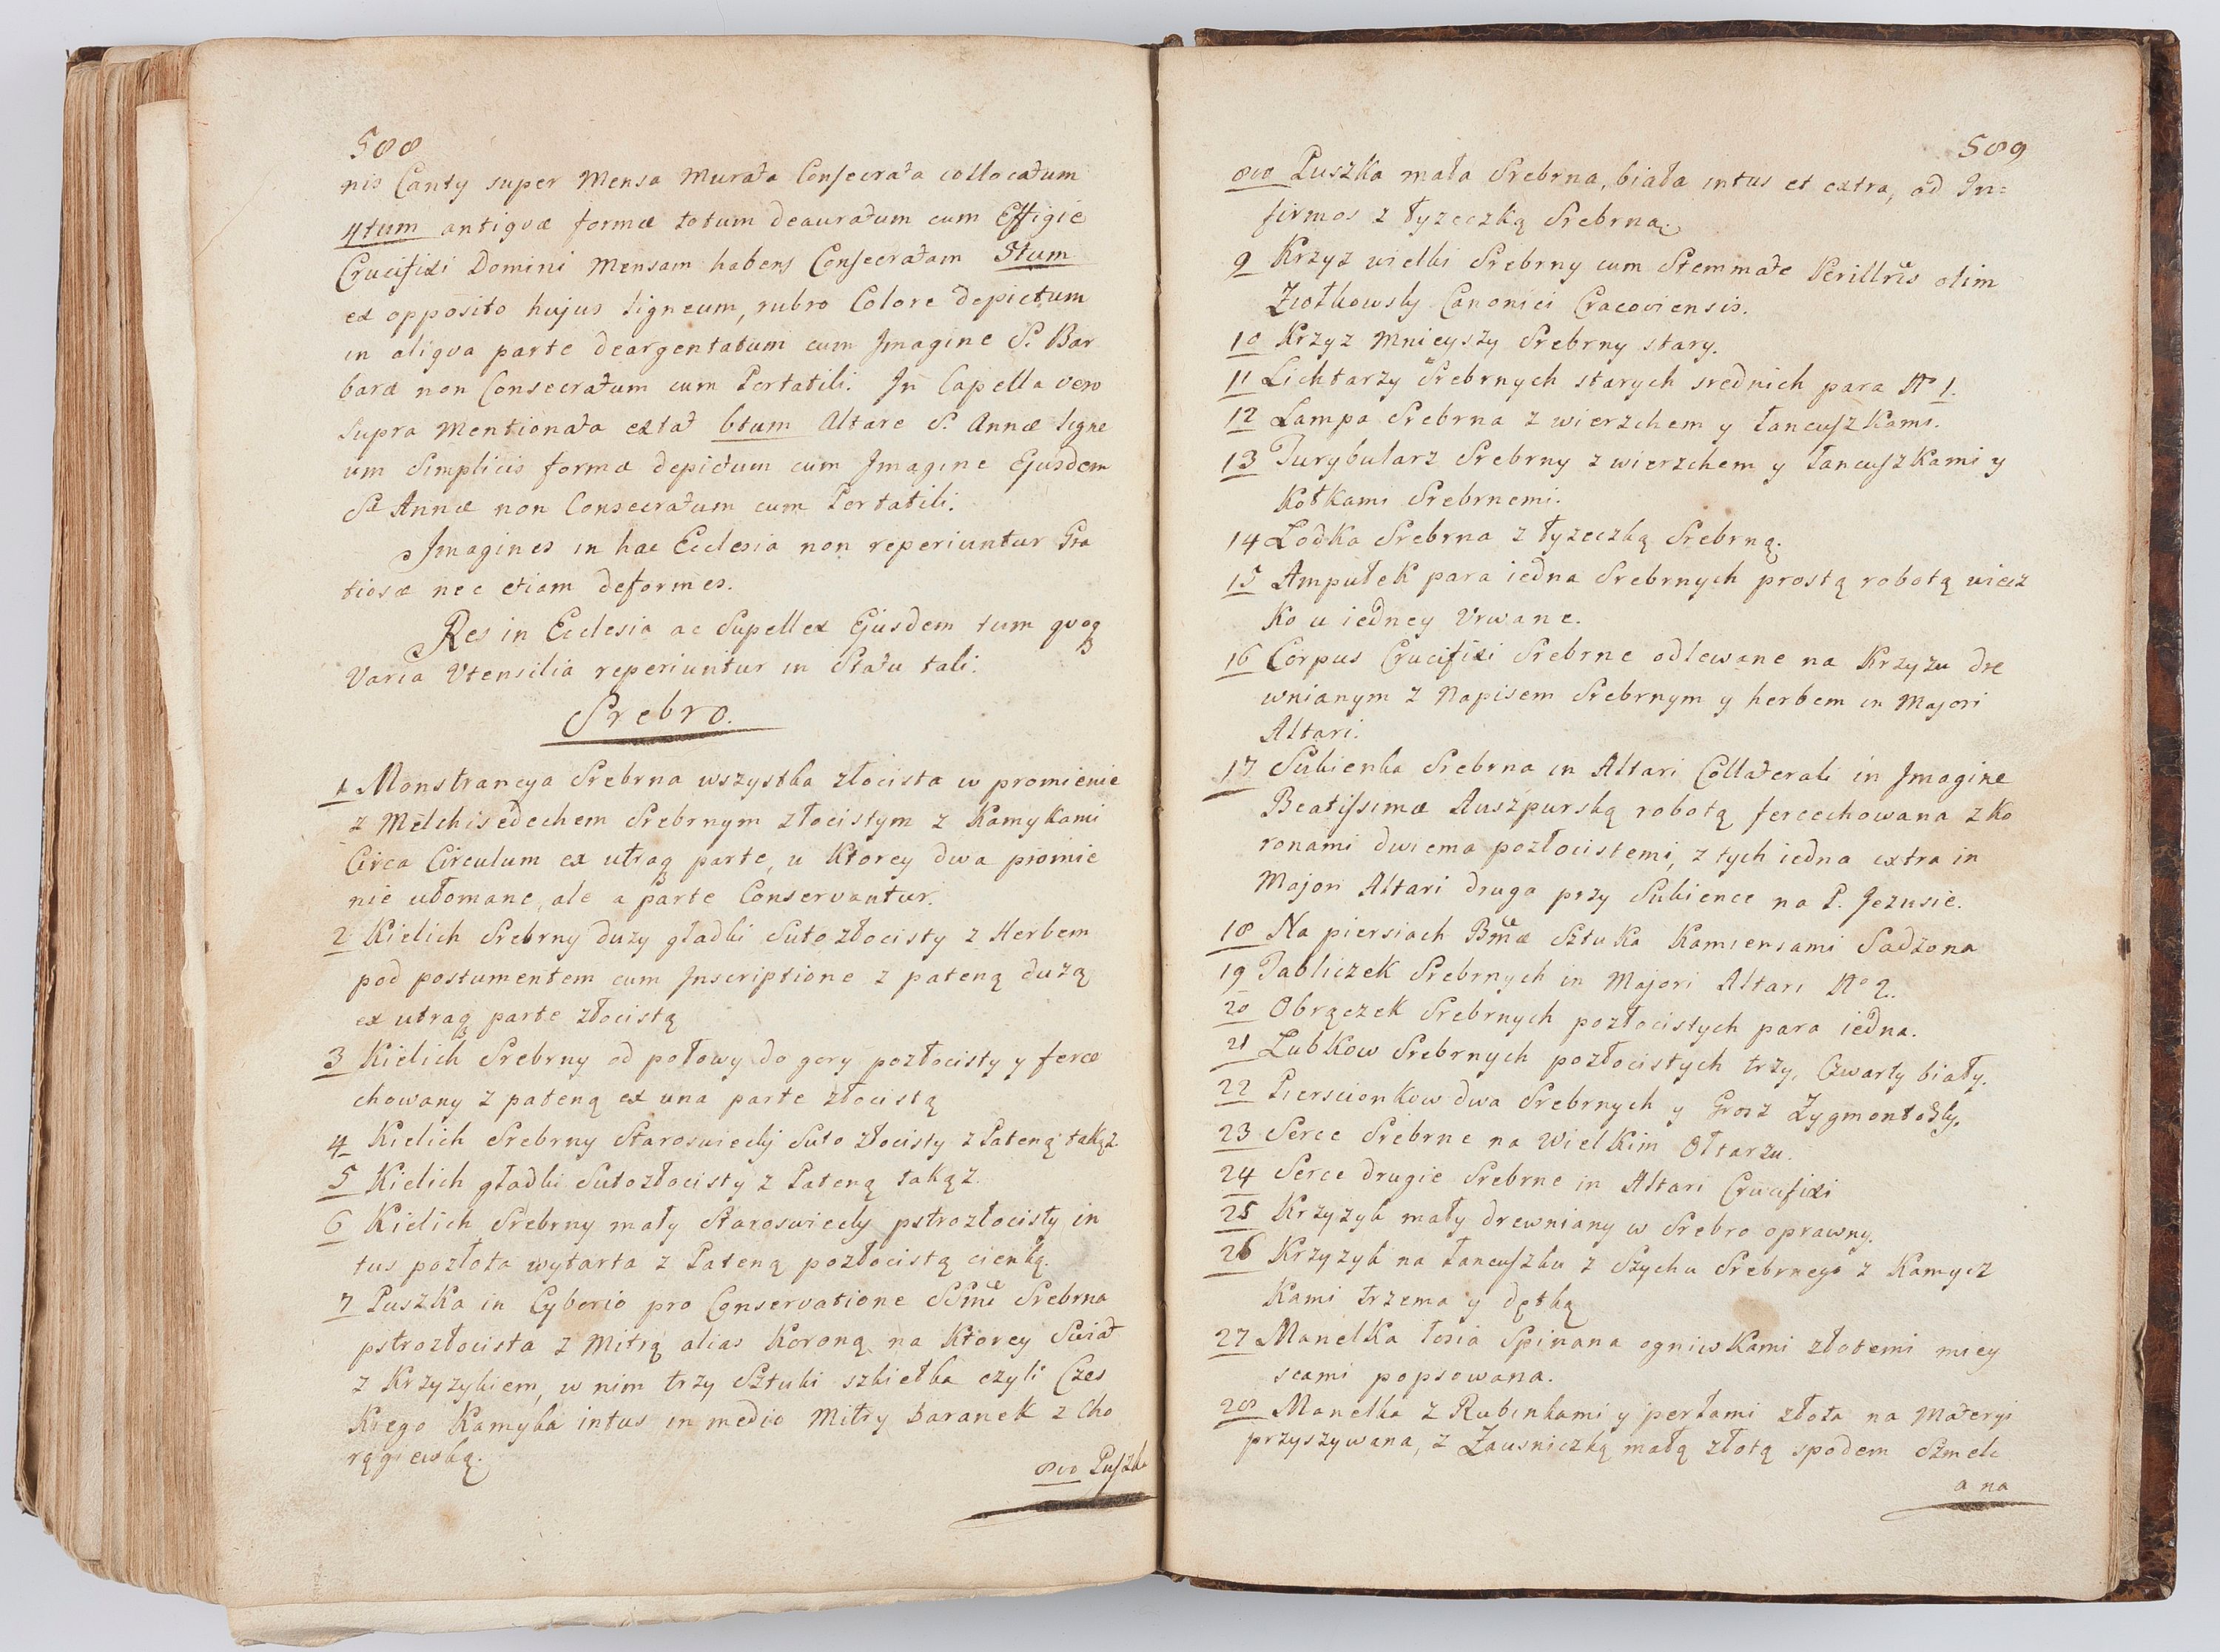 588
nis Canty super Mensa Murata Consecrata collocatum
4tum antiqvæ formæ totum deauratum cum Effigie
Crucifixi Domini Mensam habens Consecratam 5tum
ex opposito hujus ligneum, rubro Colore depictum
in aliqva parte deargentatum cum Jmagine S. Bar
baræ non Consecratum cum Portatili. Jn Capella vero
Supra Mentionata extat 6tum Altare S. Annæ ligne
um Simplicis formæ depictum cum Jmagine Ejusdem
S. Annæ non Consecratum cum Portatili.
Jmagines in hac Ecclesia non reperiuntur Gra
tiosæ nec etiam deformes.
Res in Ecclesia ac Supellex Ejusdem tum qvoq
Varia Vtensilia reperiuntur in Statu tali.
Srebro.
1 Monstrancya Srebrna wszystka złocista w promienie
z Melchisedechem Srebrnym złocistym z Kamykami
Circa Circulum ex utraq parte, u Ktorey dwa promie
nie ułomane, ale a parte Conservantur.
2 Kielich Srebrny duzy gładki Suto złocisty z Herbem
pod postumentem cum Jnscriptione z pateną duzą
ex utraq parte złocistą
3 Kielich Srebrny od połowy do gory pozłocisty y ferce
chowany z pateną ex una parte złocistą
4 Kielich Srebrny Staroswiecky Suto złocisty z Pateną takąz
5 Kielich gładki Sutozłocisty z Pateną takąz.
6 Kielich Srebrny mały Staroswiecky pstrozłocisty in
tus pozłota wytarta z Pateną pozłocistą cienką.
7 Puszka in Cyborio pro Conservatione SSmi Srebrna
pstrozłocista z Mitrą alias Koroną na Ktorey Swiat
z Krzyzykiem, w nim trzy Sztuki szkiełka czyli Czes
Kiego Kamyka intus in medio Mitry baranek z Cho
rągiewką.
8vo Puszka
589
8vo Puszka mała Srebrna, biała intus et extra, ad Jn=
firmos z łyzeczką Srebrną.
9 Krzyz wielki Srebrny cum Stemmate Perillris olim
Ziołkowsky Canonici Cracoviensis.
10 Krzyz Mnieyszy Srebrny stary.
11 Lichtarzy Srebrnych starych srednich para No 1.
12 Lampa Srebrna z wierzchem y łancuszkami.
13 Turybularz Srebrny z wierzchem y łancuszkami y
Kotkami Srebrnemi.
14 Lodka Srebrna z łyzeczką Srebrną.
15 Ampułek para iedna Srebrnych prostą robotą wiecz
Ko u iedney Vrwane.
16 Corpus Crucifixi Srebrne odlewane na Krzyzu dre
wnianym z Napisem Srebrnym y herbem in Majori
Altari.
17 Sukienka Srebrna in Altari Collaterali in Jmagine
Beatissimæ Auszpurską robotą fercechowana z Ko
ronami dwiema pozłocistemi, z tych iedna extra in
Majori Altari druga przy Sukience na P. Jezusie.
18 Na piersiach Bmæ Sztuka Kamieniami Sadzona
19 Tabliczek Srebrnych in Majori Altari No 2.
20 Obrączek Srebrnych pozłocistych para iedna.
21 Lubkow Srebrnych pozłocistych trzy, Czwarty biały.
22 Pierscionkow dwa Srebrnych y Grosz Zygmontosky.
23 Serce Srebrne na Wielkim Ołtarzu.
24 Serce drugie Srebrne in Altari Crucifixi
25 Krzyzyk mały drewniany w Srebro oprawny.
26 Krzyzyk na łancuszku z Szychu Srebrnego z Kamycz
Kami trzema y dętką
27 Manelka łosia Spinana ogniwkami złotemi miey
scami popsowana.
28 Manelka z Rubinkami y perłami złota na Materyi
przyszywana, z Zausniczką małą złotą spodem Szmelc
ana